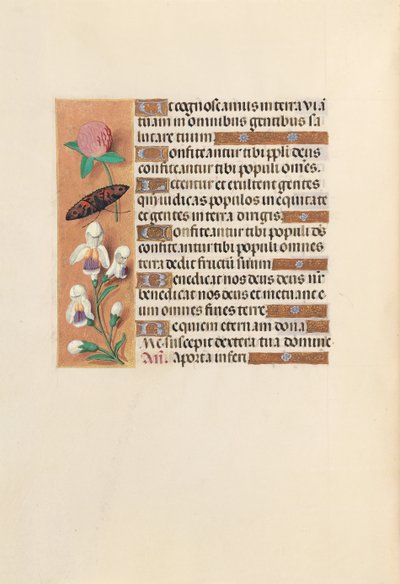 Ut cognoscamus in terra viā
tuam in omnibus gentibus sa
lutare tuum
Confiteantur tibi ppli deus
confiteantur tibi populi om̄es.
Letentur et exultent gentes
qm̄ iudicas populos in equitate
et gentes in terra dirigis
Confiteantur tibi populi dūs
confiteantur tibi populi omnes
terra dedit fructum suum
Benedicat nos deus deus nr̄
benedicat nos deus et metuant e
um omnes fines terre
Requiem eternam dona
Me suscepit dextera tua domine
An̄. A porta inferi